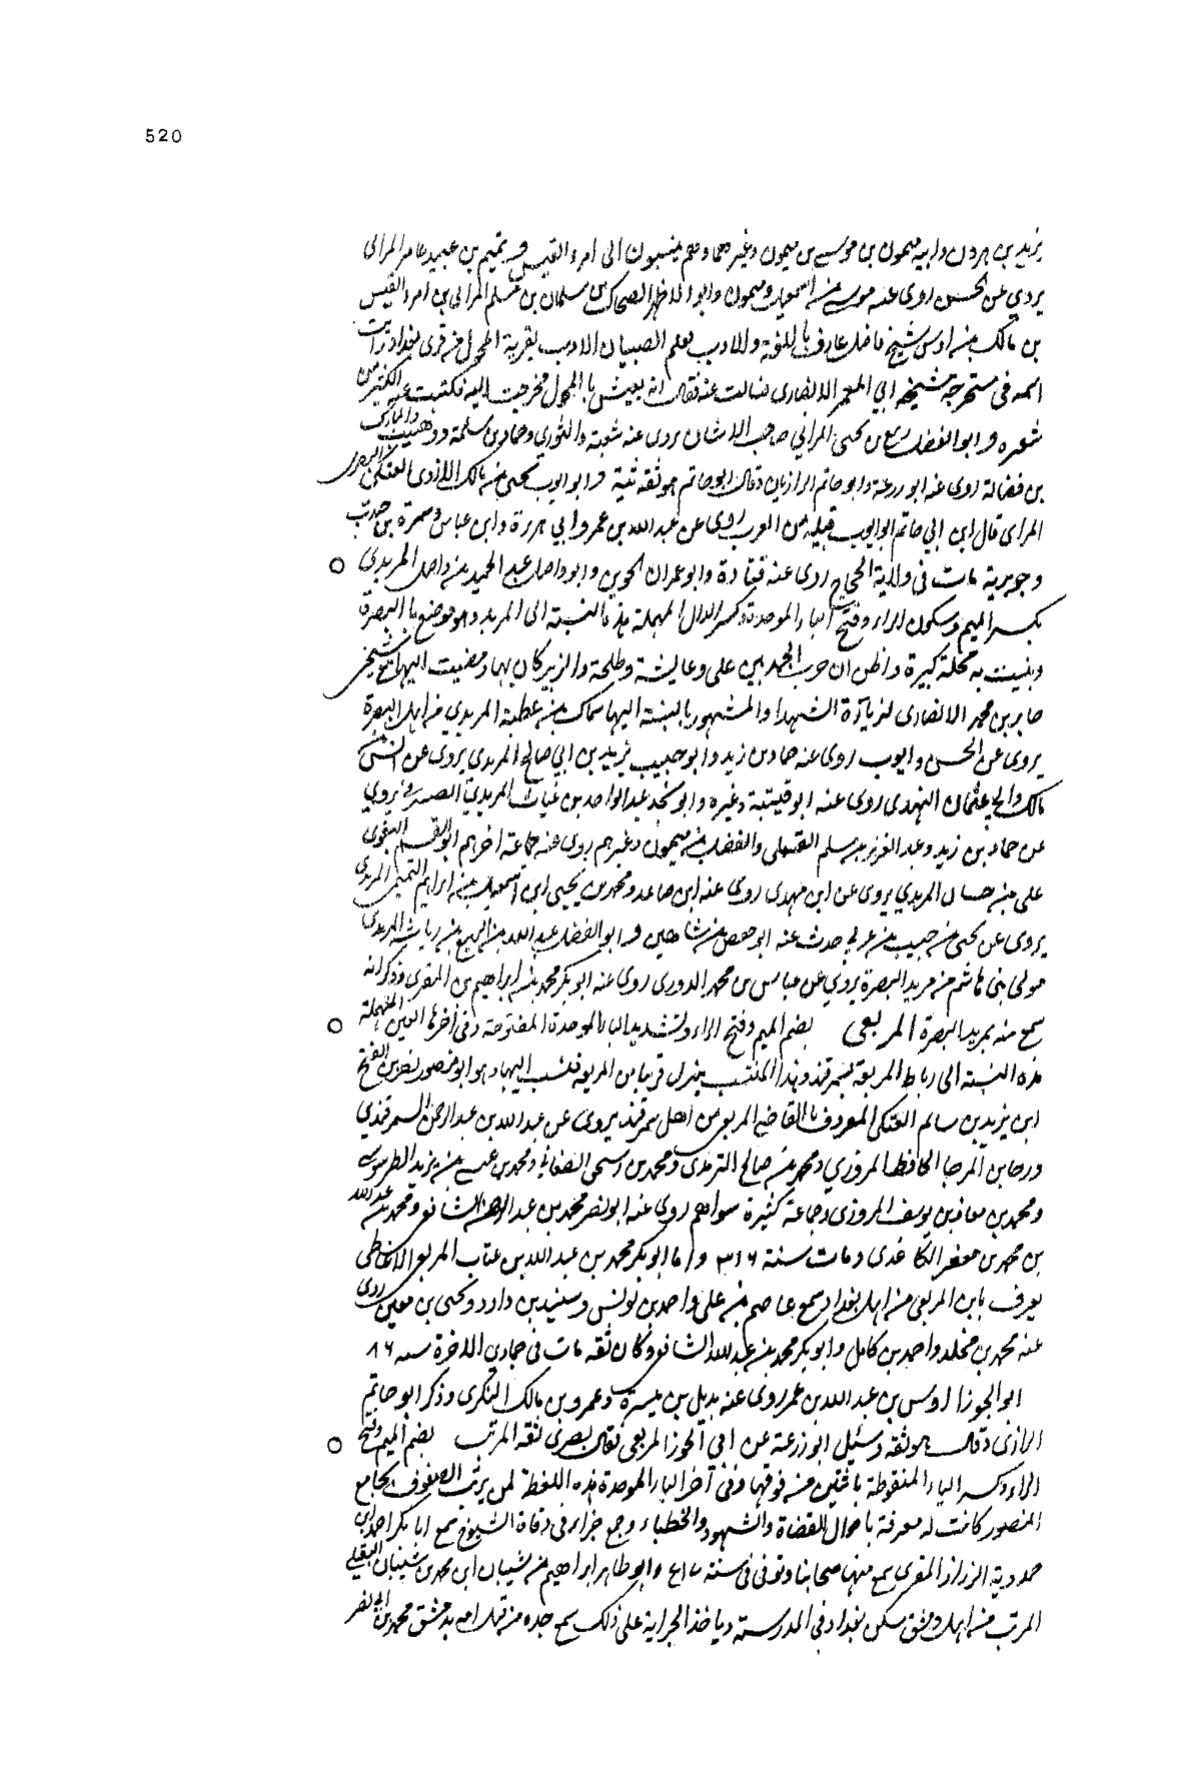 520
يزيد بن هرون وابيه ميمون بن موسى بن ميمون وغيرهما وهم ينسبون الى امرء القيس وتميم بن عبيد عامر المرائى
يروي عن الحسن روى عنه موسى بن اسمعيل وميمون وابو الازهر الضحاك بن سلمان بن مسلم المرائى بن امرء القيس
بن مالك بن اوس شيخ فاضل عارف باللغة والادب يعلم الصبيان الادب بقرية المحول من قرى بغداد رايت
اسمه في مستخرجة شيخنا ابي المعمر الانصارى فسالت عنه فقال انه يعيش بالمحول فخرجت اليه فكتبت عنه الكثير من
شعره وابو الفضل بن يحيى المرائي صاحب الاشان روى عنه شعبة والثوري وحماد بن سلمة ووهيب والمبارك
بن فضالة روى عنه ابو زرعة وابو حاتم الرازيان وقال ابو حاتم هو ثقة وابو ايوب يحيى بن مالك الازدى العتكى البصرى
المراى قال ابن ابي حاتم ابو ايوب قبيلة من العرب روى عن عبد الله بن عمرو وابي هريرة وابن عباس وسمرة بن جندب
وجويرية مات في ولاية الحجاج روى عنه قتادة وابو عمران الجوني وابو واصل عبد الحميد بن واصل المربدي
بكسر الميم وسكون الراء وفتح الباء الموحدة وكسر الدال المهملة هذه النسبة الى المربد وهو موضع بالبصرة
وبنيت به محلة كبيرة واظن ان حرب الجمل بين على وعايشة وطلحة والزبير كان بها ومضيت اليها مع شيخى
جابر بن محمد الانصارى لزيارة الشهدا والمشهور بالنسبة اليها سماك بن عطية المربدي من اهل البصرة
يروى عن الحسن وايوب روى عنه حماد بن زيد وابو حبيب يزيد بن ابي صالح المربدى يروى عن انس بن
مالك وابي عثمان النهدى روى عنه ابو قتيبة وغيره وابو بحر عبد الواحد بن غياث المربدي الصيرفي يروي
عن حماد بن زيد وعبد العزيز بن مسلم القسملى والفضل بن ميمون وغيرهم روى عنه جماعة اخرهم ابو القسم البغوى
على بن حسان المربدي يروى عن ابن مهدى روى عنه ابن صاعد ومحمد بن يحيى ابن اسمعيل بن ابراهيم التميمى المربدى
يروى عن يحيى بن حبيب بن عربي حدث عنه ابو حفص بن شاهين وابو الفضل عبد الله بن الربيع بن راشد المربدى
مولى بنى هاشم من مربد البصرة يروي عن عباس بن محمد الدورى روى عنه ابو بكر محمد بن ابراهيم بن المقرى وذكر انه
سمع منه بمربد البصرة المربعى بضم الميم وفتح الراء وتشديد الباء الموحدة المفتوحة وفي آخرها العين المهملة
هذه النسبة الى رباط المربعة بسمرقند وهذا المنتسب ينزل قريبا من المربعة فنسب اليها وهو ابو منصور نصر بن الفتح
ابن يزيد بن سالم العتكى المعروف بالقاضى المربعى من اهل سمرقند يروى عن عبد الله بن عبد الرحمن السمرقندي
ورجا بن المرجا الحافظ المروزي ومحمد بن صالح الترمذى ومحمد بن اسحق الصغاني ومحمد بن عيسى بن يزيد الطرسوسى
ومحمد بن معاذ بن يوسف المروزى وجماعة كثيرة سواهم روى عنه ابو نصر محمد بن عبد الرحمن الشافعى ومحمد بن عبد الله
بن محمد بن جعفر الكاغدى ومات سنة ٣١٦ واما ابو بكر محمد بن عبد الله بن عتاب المربعى الانماطى
يعرف بابن المربعى من اهل بغداد سمع عاصم بن على واحمد بن يونس وسنيد بن داود ويحيى بن معين روى
عنه محمد بن مخلد واحمد بن كامل وابو بكر محمد بن عبد الله الشافعى وكان ثقة مات في جمادى الاخرة سنه ٨٦
ابو الجوزا اوس بن عبد الله بن عمر روى عنه بديل بن ميسرة وعمرو بن مالك النكرى وذكر ابو حاتم
الرازى وقال هو ثقة وسئل ابو زرعة عن ابي الجوزا المربعى فقال بصرى ثقة المرتب بضم الميم وفتح
الراء وكسر التاء المنقوطة باثنتين من فوقها وفي آخر الباء الموحدة هذه اللفظة لمن يرتب الصفوف بجامع
المنصور كانت له معرفة باحوال القضاة والشهود والخطباء وجمع جزاء في وفاة الشيوخ سمع ابا بكر احمد بن
حمدوية الرزاز المقرى سمع منها صحابنا وتوفى في سنة وابو طاهر ابراهيم بن شيبان ابن محمد بن شيبان النفيلى
المرتب من اهل دمشق سكن بغداد في المدرسة وياخذ الجراية على ذلك سمع جده من قبل امه بدمشق محمد بن ابي نصر